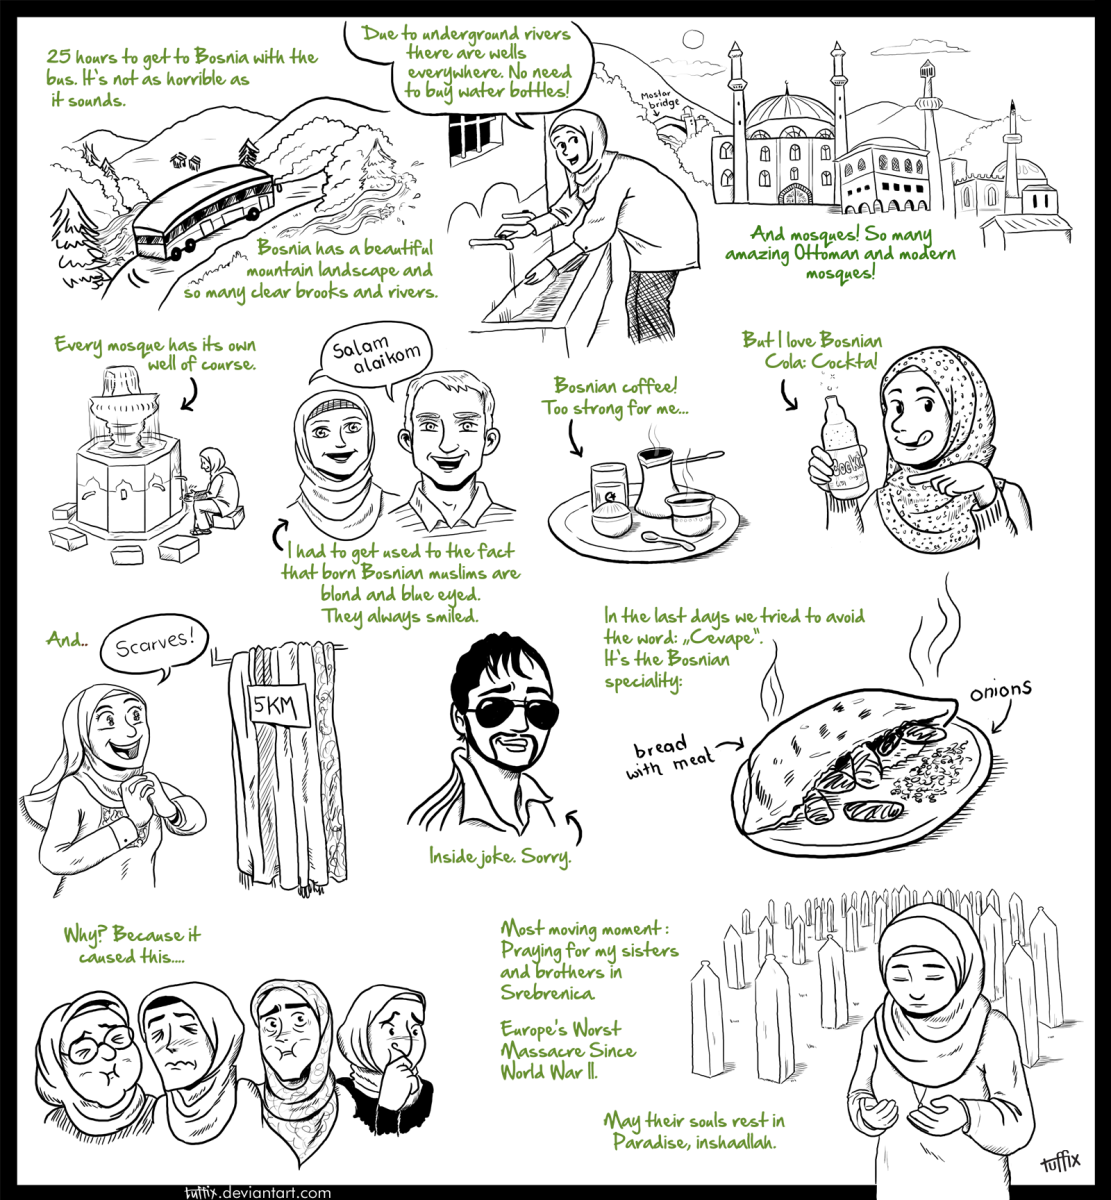 25 hours to get to Bosnia with the
bus. It's not as horrible as
it sounds.
Due to underground rivers
there are wells
everywhere. No need
to buy water bottles!
Mostar
bridge
Bosnia has a beautiful
mountain landscape and
so many clear brooks and rivers.
And mosques! So many
amazing Ottoman and modern
mosques!
Every mosque has its own
well of course.
Salam
alaikom
I had to get used to the fact
that born Bosnian muslims are
blond and blue eyed.
They always smiled.
Bosnian coffee!
Too strong for me...
But I love Bosnian
Cola: Cockta!
Cockt
And..
Scarves!
5KM
Inside joke. Sorry.
In the last days we tried to avoid
the word: „Cevape“.
It's the Bosnian
speciality:
bread
with meat
onions
Why? Because it
caused this....
Most moving moment :
Praying for my sisters
and brothers in
Srebrenica.
Europe's Worst
Massacre Since
World War II.
May their souls rest in
Paradise, inshaallah.
tuffix
tuffix.deviantart.com